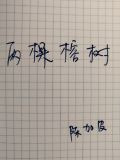 两棵榕树
陈加良